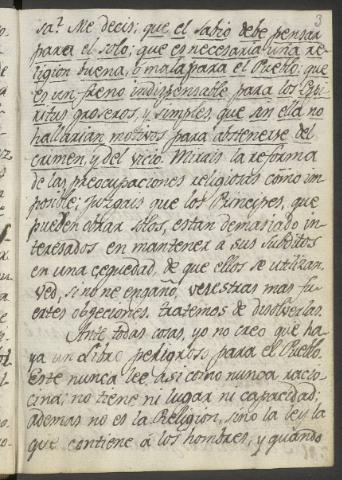 3
sa? Me decis; que el sabio debe pensar
para el solo; que es necesaria una re-
ligion buena, ò mala para el Pueblo; que
es un freno indispensable para los Espi-
ritus groseros, y simples, que sin ella no
hallarian motivos para abstenerse del
crimen, y del vicio. Mirais la reforma
de las preocupaciones religiosas como im
posible; juzgais que los Principes, que
pueden obrar solos, estan demasiado in-
teresados en mantener a sus subditos
en una ceguedad, de que ellos se utilizan.
Ved, si no me engaño, vuestras mas fu-
ertes obgeciones. tratemos de disolverlas.
Ante todas cosas, yo no creo que ha-
ya un Libro peligroso para el Pueblo.
Este nunca lee, asi como nunca racio-
cina; no tiene ni lugar ni capacidad;
ademas no es la Religion, sino la ley la
que contiene à los hombres, y quando